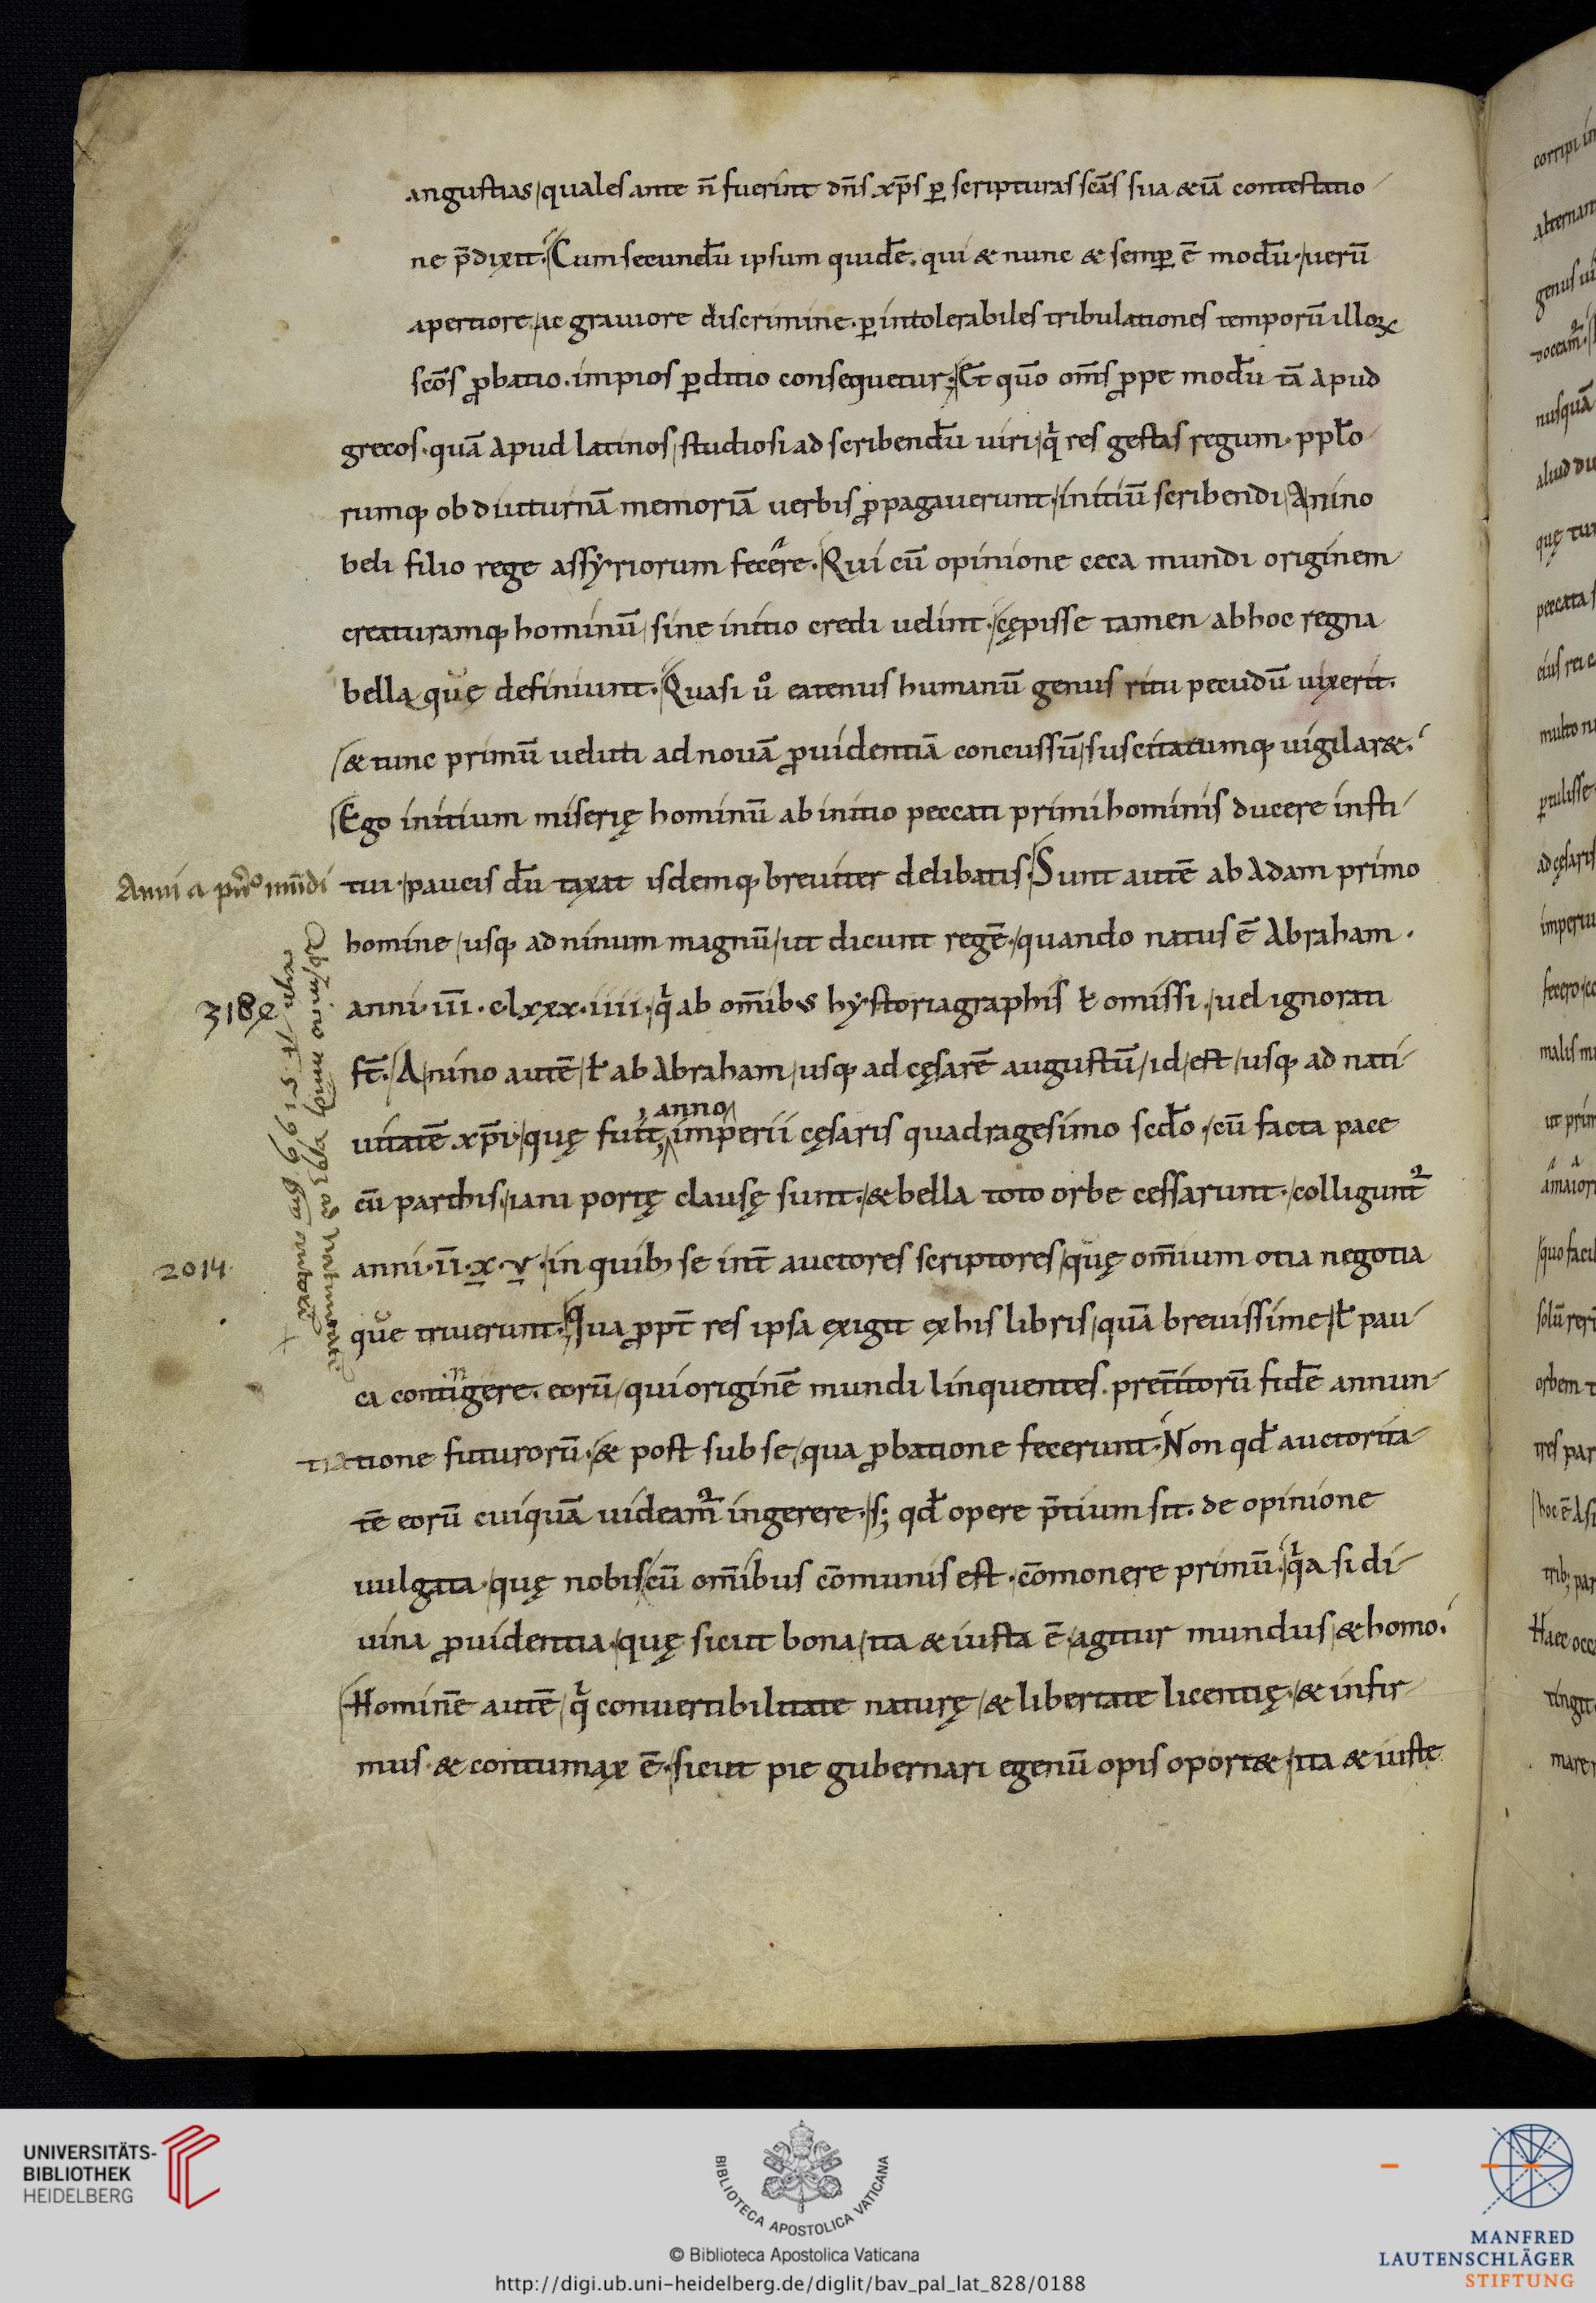 angustias quales ante n̄ fuerint dn̄s xp̄s ꝑ scripturas scās sua &iā contestatio
ne p̄dixit. Cum secundū ipsum quidē. qui & nunc & semꝑ ē modū. uerū
apertiore ac grauiore discrimine. ꝑ intolerabiles tribulationes temporū illoꝝ
scōs ꝓbatio. impios ꝑditio consequetur; Et quō om̄s ꝓpe modū tā apud
grecos. quā apud latinos studiosi ad scribendū uiri q̇ res gestas regum. pplo
rumq; ob diuturnā memoriā uerbis ꝓpagauerunt. initiū scribendi A nino
beli filio rege assyriorum fecere. Qui cū opinione ceca mundi originem
creaturamq; hominū sine initio credi uelint. cępisse tamen ab hoc regna
bella quę definiunt. Quasi u͛o eatenus humanū genus ritu pecudū uixerit.
& tunc primū ueluti ad nouā ꝓuidentiā concussū suscitatumq; uigilar&.
Ego initium miserię hominū ab initio peccati primi hominis ducere insti
Anni a pn͛o mūdi
tui. paucis dū taxat isdemq; breuiter delibatis. Sunt autē ab Adam primo
homine usq; ad ninum magnū ut dicunt regē. quando natus ē Abraham.
3184
anni. III. clxxx. iiii. q̇ ab om̄ibus hystoriagraphis ł omissi. uel ignorati
st̄. A nino autē ł ab Abraham usq; ad cęsarē augustū id est usq; ad nati
anno
uitatē xp̄i. quę fuit, imperii cęsaris quadragesimo scdo. cū facta pace
cū parthis. iani portę clausę sunt. & bella toto orbe cessarunt. colligunt᷑
2014.
anni. II. x. v. in quib; se int̄ auctores scriptores quę om̄ium otia negotia
que triuerunt. Qua ꝓpt̄ res ipsa exigit ex his libris quā breuissime ł pau
ca contingere. eorū qui originē mundi linquentes. preteritorū fidē annun
tiatione futurorū. & post sub se qua ꝓbatione fecerunt. Non qd̄ auctorita
tē eorū cuiquā uideam᷑ ingerere. s; qd̄ opere p̄tium sit. de opinione
uulgata. quę nobis cū om̄ibus cōmunis est. cōmonere primū. q̇a si di
uina ꝓuidentia. quę sicut bona ita & iusta ē. agitur mundus & homo.
Hominē autē q̇ conuertibilitate naturę & libertate licentię. & infir
mus. & contumax ē. sicut pie gubernari egenū opis oport& ita & iuste
UNIVERSITÄTS-
BIBLIOTHEK
HEIDELBERG
BIBLIOTECA APOSTOLICA VATICANA
© Biblioteca Apostolica Vaticana
http://digi.ub.uni-heidelberg.de/diglit/bav_pal_lat_828/0188
MANFRED
LAUTENSCHLÄGER
STIFTUNG